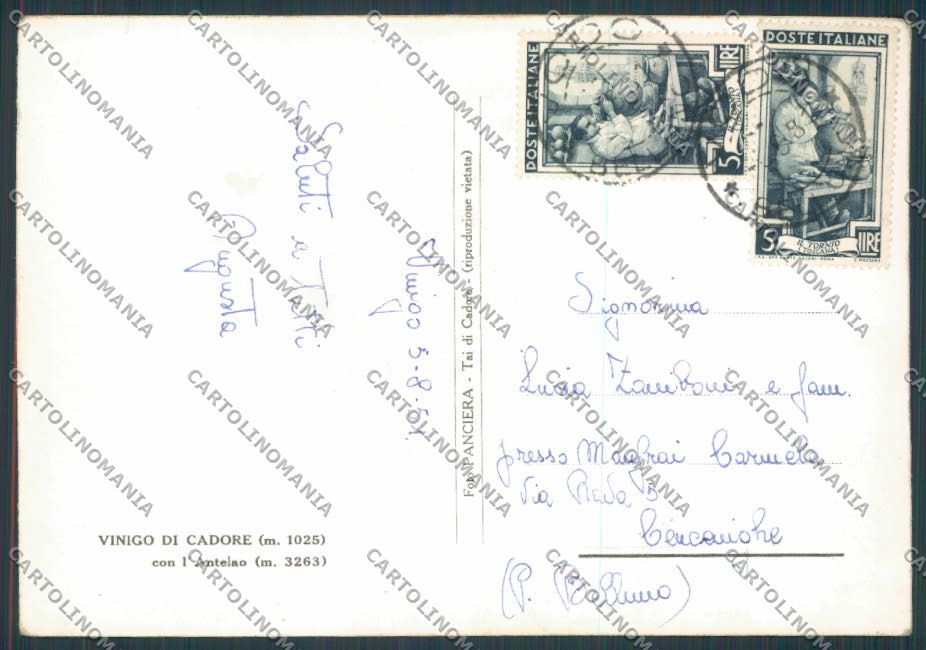 Vinigo 5-8-51.
Saluti a Tutti
Augusta
VINIGO DI CADORE (m. 1025)
con l'Antelao (m. 3263)
Foto PANCIERA - Tai di Cadore - (riproduzione vietata)
POSTE ITALIANE
5 LIRE
IL TORNIO
(TOSCANA)
POSTE ITALIANE
5 LIRE
IL TORNIO
(TOSCANA)
Signorina
Lucia Zamboni e fam.
presso Carmela
Via 5
Cencenighe
(P. Belluno)
CARTOLINOMANIA